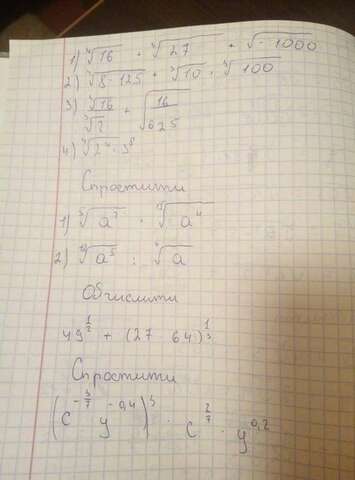 1) ⁴√16 + ³√27 + √-1000
2) ³√8·125 + ³√10 · ³√100
3) ³√16 / ³√2 + √16/625
4) ⁴√2⁴·3⁸
Спростити
1) ⁵√a³ · √a⁴
2) √a⁵ : √a
Обчислити
49^(1/2) + (27 64)^(1/3)
Спростити
(c^(-3/7) y^(-0,4))^3 · c^(2/7) · y^(0,2)